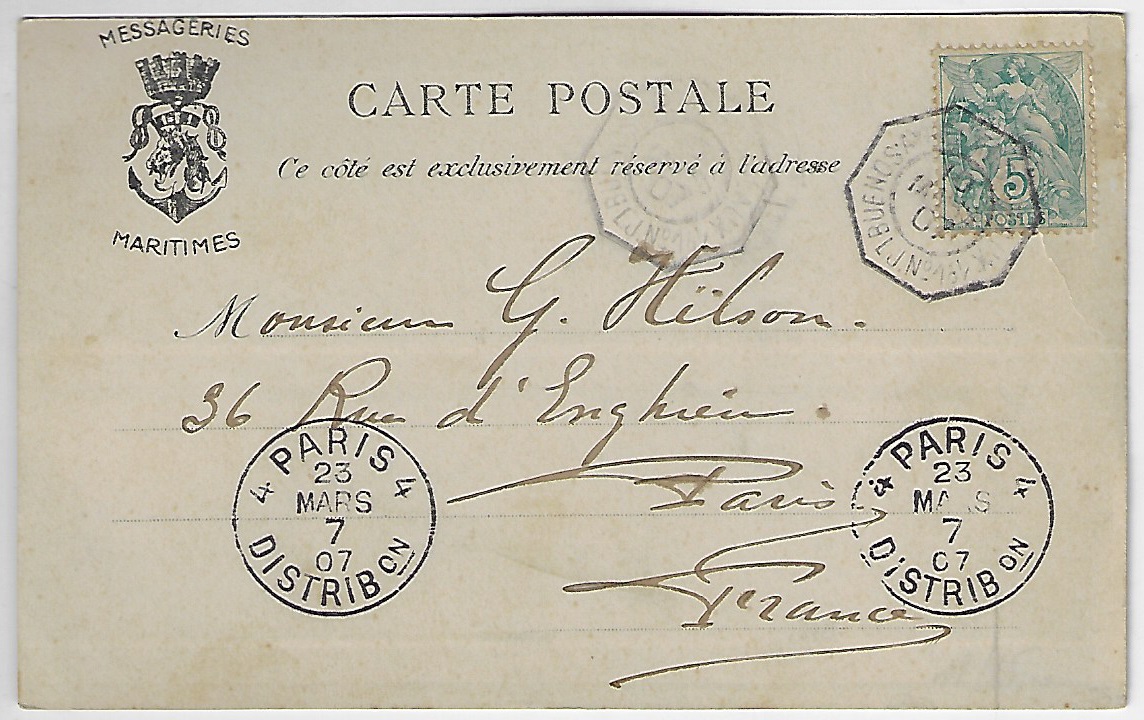 MESSAGERIES
MARITIMES
CARTE POSTALE
Ce côté est exclusivement réservé à l'adresse
5
POSTES
BUENOS
Monsieur G. Hilson.
36 Rue d'Enghien.
Paris
France
4 PARIS 4
23
MARS
7
07
DISTRIBON
4 PARIS 4
23
MARS
7
07
DISTRIBON